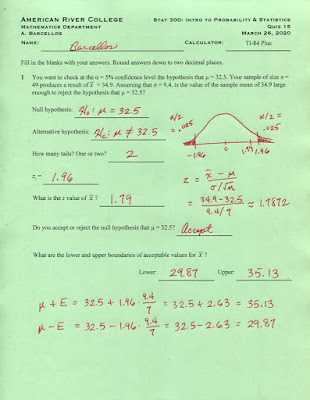 AMERICAN RIVER COLLEGE STAT 300: INTRO TO PROBABILITY & STATISTICS
MATHEMATICS DEPARTMENT QUIZ 15
A. BARCELLOS MARCH 26, 2020
NAME: Barcellos CALCULATOR: TI-84 Plus
Fill in the blanks with your answers. Round answers down to two decimal places.
1 You want to check at the α = 5% confidence level the hypothesis that μ = 32.5. Your sample of size n =
49 produces a result of x̄ = 34.9. Assuming that σ = 9.4, is the value of the sample mean of 34.9 large
enough to reject the hypothesis that μ = 32.5?
Null hypothesis: H₀: μ = 32.5
α/2 = .025
α/2 = .025
Alternative hypothesis: H₁: μ ≠ 32.5
-1.96 0 1.79 1.96
How many tails? One or two? 2
z = x̄ - μ / σ/√n
zc = 1.96
= 34.9 - 32.5 / 9.4/7 ≈ 1.7872
What is the z value of x̄? 1.79
Do you accept or reject the null hypothesis that μ = 32.5? Accept
What are the lower and upper boundaries of acceptable values for x̄?
Lower: 29.87 Upper: 35.13
μ + E = 32.5 + 1.96 · 9.4/7 = 32.5 + 2.63 = 35.13
μ - E = 32.5 - 1.96 · 9.4/7 = 32.5 - 2.63 = 29.87